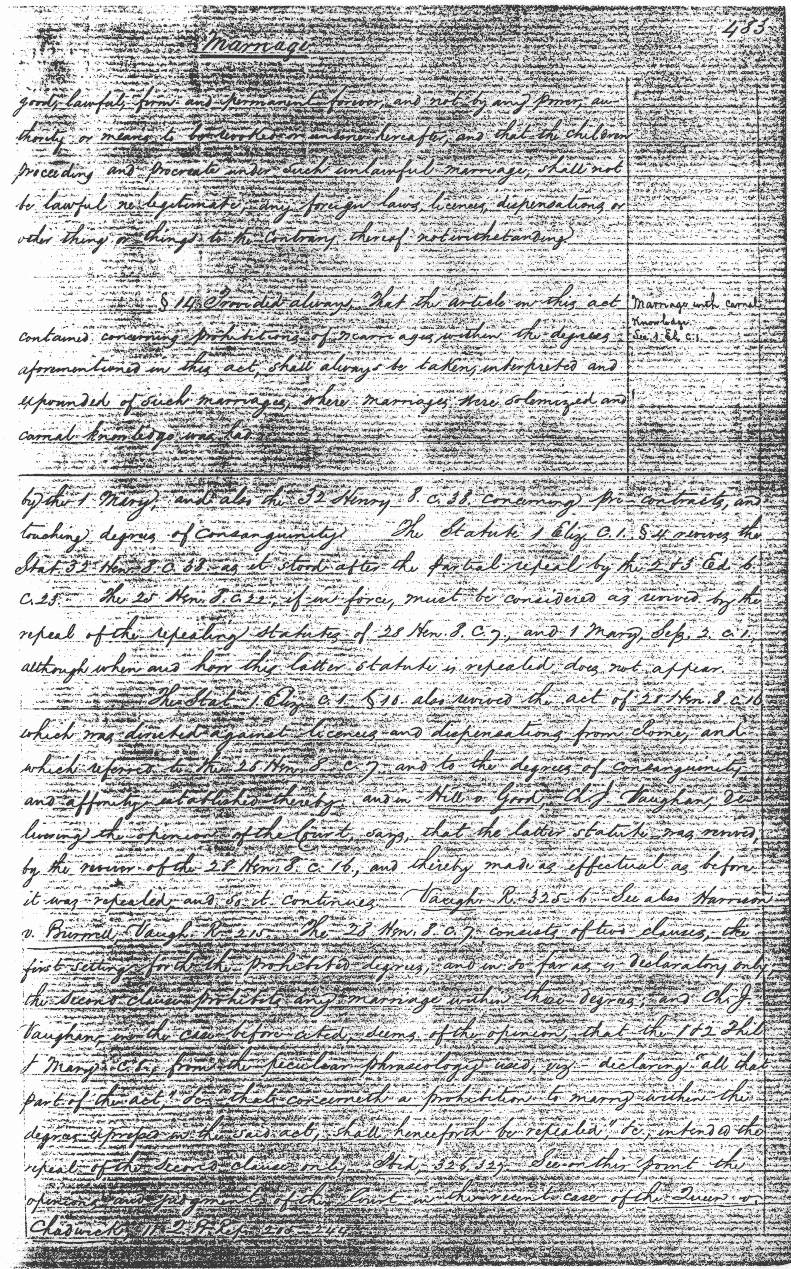 483
Marriage
good, lawful, firm and permanent forever, and not by any power, au-
thority, or means to be revoked or undone hereafter, and that the children
proceeding and procreate under such unlawful marriage, shall not
be lawful ne legitimate, any foreign laws, licences, dispensations, or
other thing or things to the contrary thereof notwithstanding
§ 14 Provided always, That the article in this act
Marriage with carnal
knowledge.
See 1 El. C. 1.
contained concerning prohibitions of marriages within the degrees
aforementioned in this act, shall always be taken, interpreted and
expounded of such marriages, where marriages were solemized and
carnal knowledge was had.
by the 1 Mary, and also the 32 Henry 8. c. 38. concerning pre-contracts, and
touching degrees of consanguinity. The Statute 1 Eliz. C. 1. § 4 revives the
Stat. 32 Hen. 8. C. 38 as it stood after the partial repeal by the 2 & 3 Ed. 6.
C. 23. The 25 Hen. 8. C. 22, if in force, must be considered as revived by the
repeal of the repealing statutes of 28 Hen. 8. C. 7, and 1 Mary, Sess. 2. c. 1.
although when and how this latter statute is repealed does not appear.
The Stat. 1 Eliz. c. 1. § 10. also revived the act of 28 Hen. 8. c. 16
which was directed against licences and dispensations from Rome, and
which referred to the 28 Hen. 8. c. 7. and to the degrees of consanguinity
and affinity established thereby. and in Hill v. Good, Ch. J. Vaughan, de-
livering the opinion of the Court, says, that the latter statute was revived,
by the reviver of the 28 Hen. 8. c. 16, and thereby made as effectual as before
it was repealed and so it continues Vaugh. R. 325-6. See also Harrison
v. Burwell, Vaugh. R. 215. The 28 Hen. 8. c. 7. consists of two clauses, the
first setting forth the prohibited degrees, and in so far as is declaratory only,
the second clause prohibits any marriage within those degrees, and Ch. J.
Vaughan, in the case before cited, seems of the opinion, that the 1 & 2 Phil
& Mary. c. 8., from the peculiar phraseology used, viz. declaring "all that
part of the act," &c. "that concerneth a prohibition to marry within the
degrees in the said act, shall henceforth be repealed," &c., intended the
repeal of the second clause only. Ibid. 326, 327. See on this point the
opinions and judgment of the Court in the recent case of the Queen v.
Chadwick, 11 Q. B. Rep.